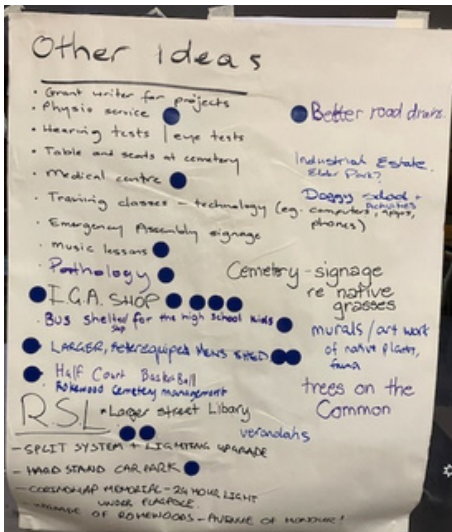 Other Ideas
• Grant writer for projects
• Physio service
• Hearing tests / eye tests
• Table and seats at cemetery
• Medical centre
• Training classes - technology (eg. computers, apps, phones)
• Emergency Assembly signage
• music lessons
• Pathology
I.G.A. SHOP
• Bus shelter for the high school kids
LARGER, BETTER EQUIPED MENS SHED
• Half Court Basketball
Rokewood Cemetery management
R.S.L
• Larger street Libary
- SPLIT SYSTEM + LIGHTING UPGRADE
- HARD STAND CAR PARK
- CORINDHAP MEMORIAL - 24 HOUR LIGHT
UNDER FLAGPOLE.
OF ROKEWOODS - AVENUE OF HONOUR!
Better road drains.
Industrial Estate.
Park?
Doggy School +
Activities
Cemetery - signage
re native
grasses
murals / art work
of native plants,
fauna
trees on the
Common
verandahs